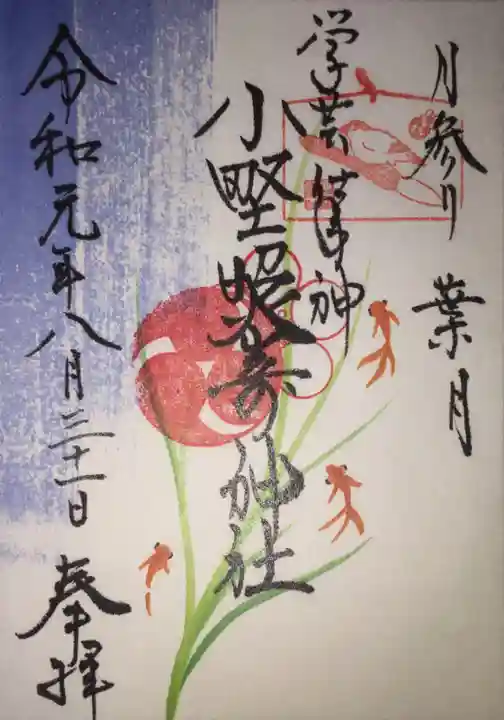 月参り 葉月
学芸の神
小野照崎神社
令和元年八月三十一日 奉拝